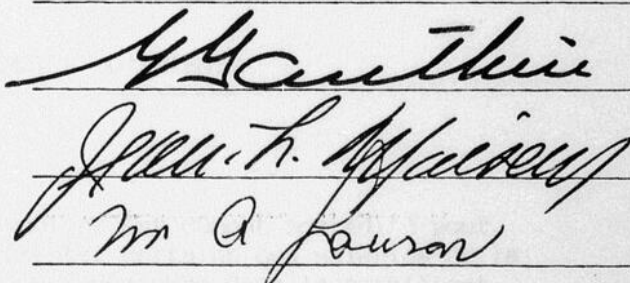 G Gauthier
Jean. L.
M A Lawson